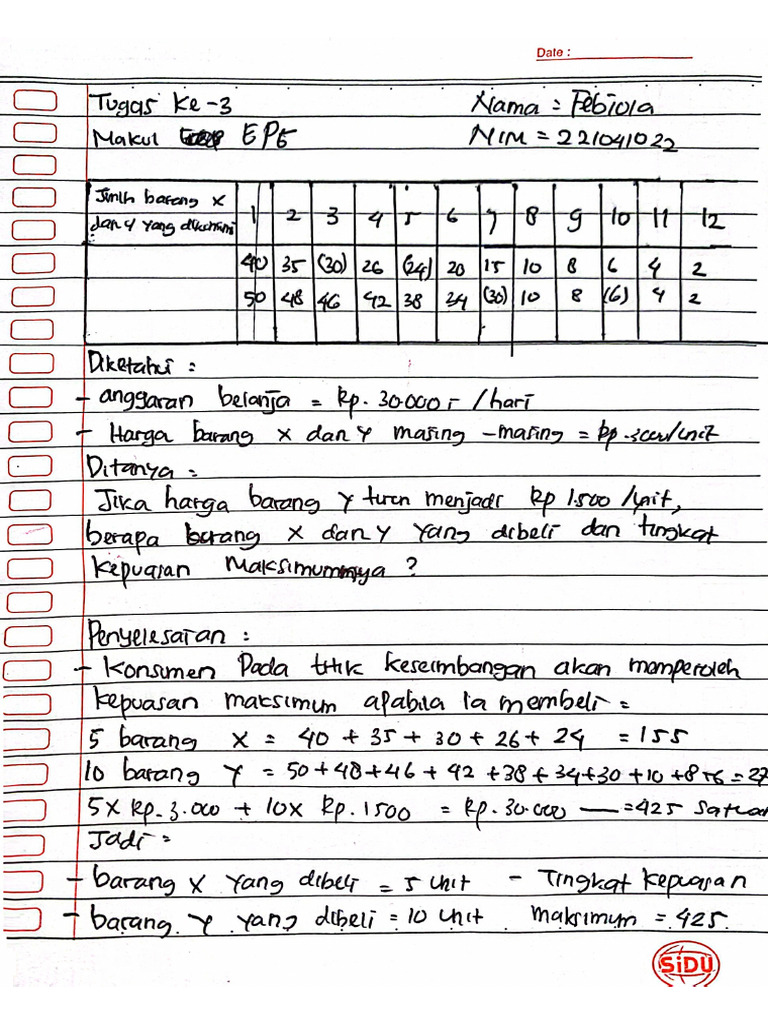 Date :
Tugas Ke-3 Nama = Febiola
Makul EPE NIM = 221041022
Jmlh barang x dan y yang dikonsumsi 1 2 3 4 5 6 7 8 9 10 11 12
40 35 (30) 26 (24) 20 15 10 8 6 4 2
50 48 46 42 38 34 (30) 10 8 (6) 4 2
Diketahui :
- anggaran belanja = Rp. 30.000,- /hari
- Harga barang x dan y masing-masing = Rp. 3000/unit
Ditanya =
Jika harga barang y turun menjadi Rp 1.500 /unit,
berapa barang x dan y yang dibeli dan tingkat
kepuasan Maksimumnya ?
Penyelesaian :
- Konsumen Pada titik keseimbangan akan memperoleh
kepuasan maksimum apabila ia membeli =
5 barang x = 40 + 35 + 30 + 26 + 24 = 155
10 barang y = 50+48+46+42+38+34+30+10+8+6=27
5 x Rp. 3.000 + 10 x Rp. 1500 = Rp. 30.000 — =425 satuan
Jadi =
- barang x yang dibeli = 5 unit - Tingkat kepuasan
- barang y yang dibeli = 10 unit maksimum = 425.
SiDU